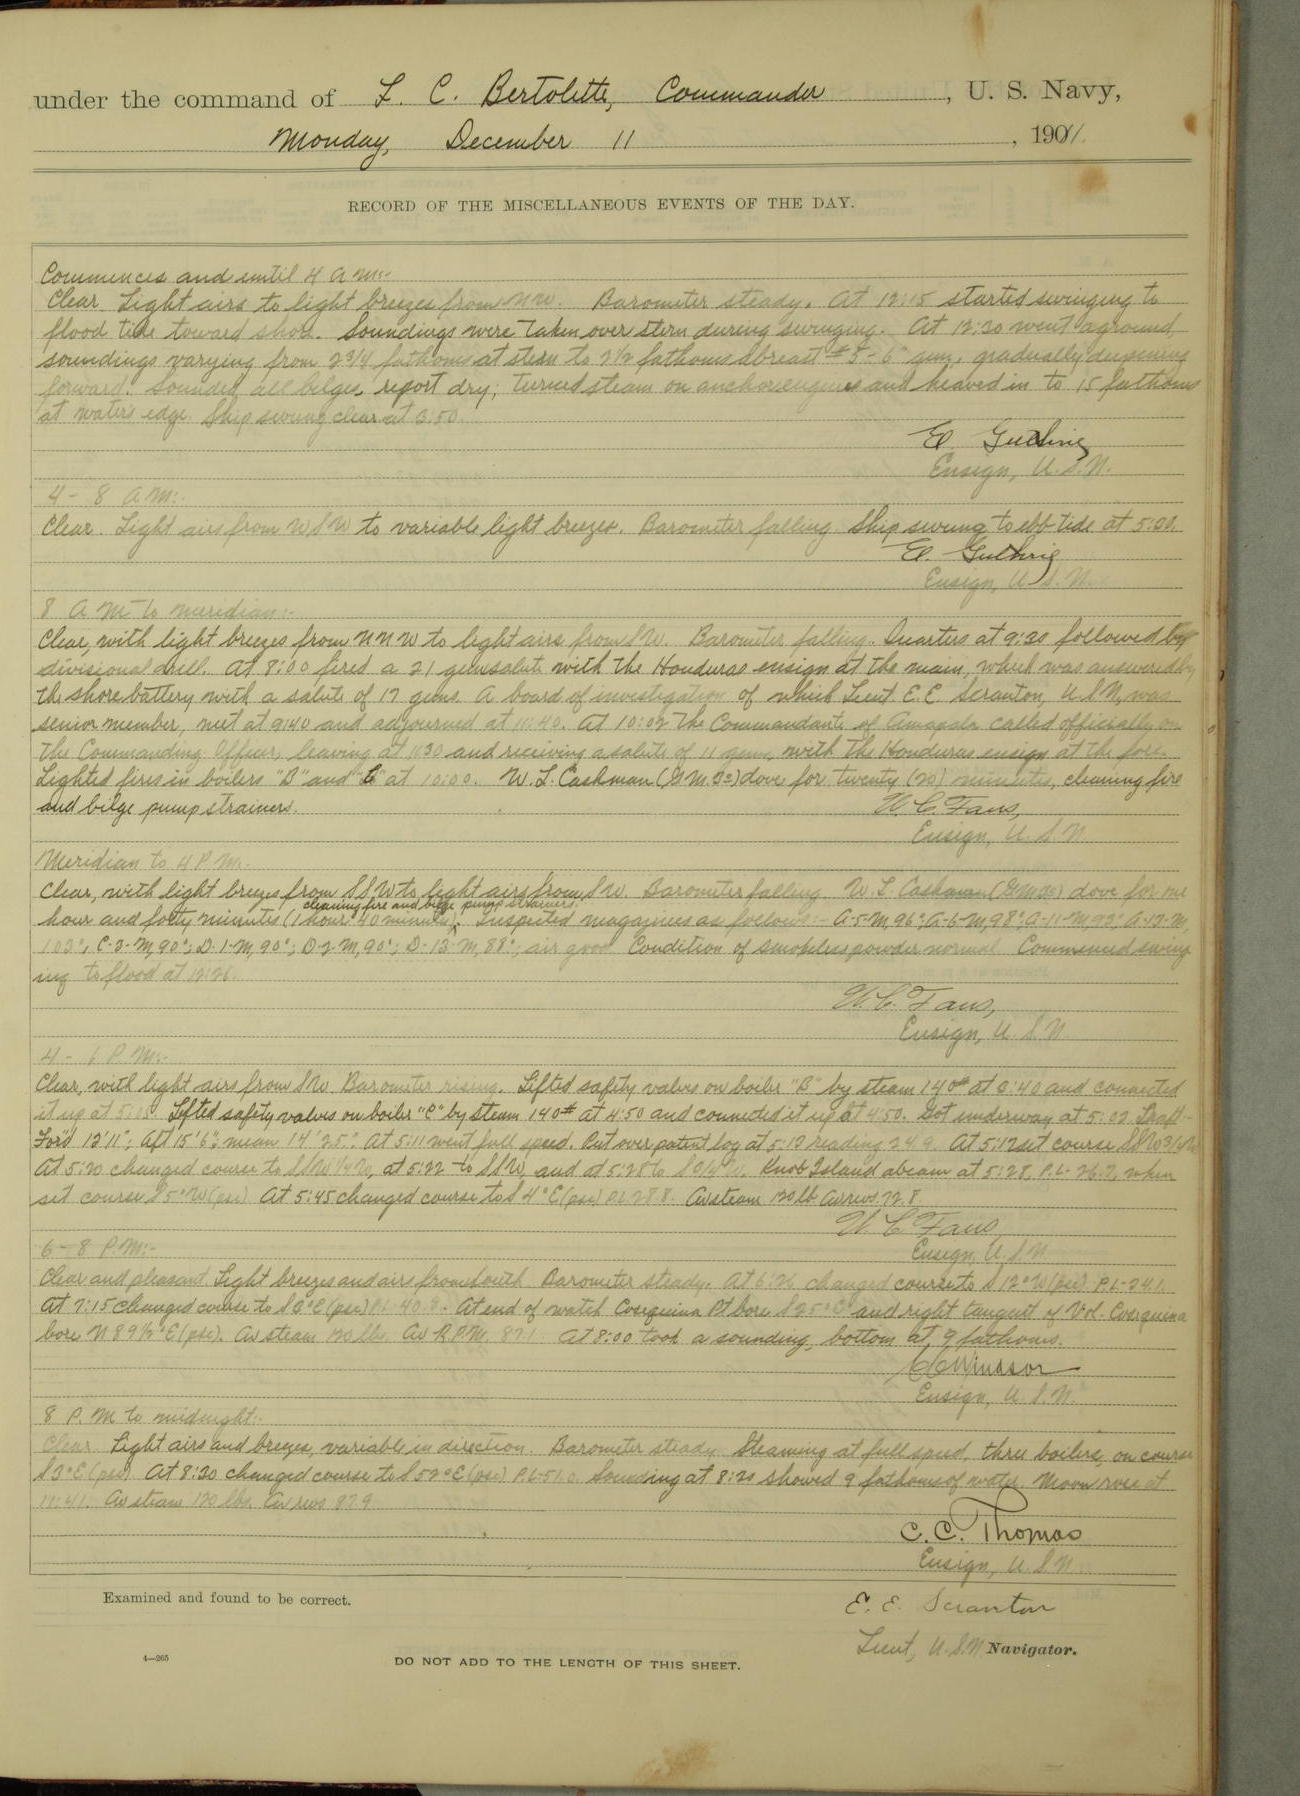 under the command of L. C. Bertolette, Commander, U. S. Navy,
Monday, December 11, 1911.
RECORD OF THE MISCELLANEOUS EVENTS OF THE DAY.
Commences and until 4 A.M:-
Clear. Light airs to light breezes from NW. Barometer steady. At 12:15 started swinging to
flood tide toward shore. Soundings were taken over stern during swinging. At 12:30 went aground,
soundings varying from 2 3/4 fathoms at stern to 2 1/2 fathoms abreast #5-6" gun, gradually deepening
forward. Sounded all bilges, report dry; turned steam on anchor engines and heaved in to 15 fathoms
at waters edge. Ship swung clear at 3:50.
E Guthrie
Ensign, U.S.N.
4 - 8 A.M:-
Clear. Light airs from WSW to variable light breezes. Barometer falling. Ship swung to ebb tide at 5:20.
E. Guthrie
Ensign, U.S.N.
8 A.M. to meridian:-
Clear, with light breezes from NNW to light airs from SW. Barometer falling. Quarters at 9:30 followed by
divisional drill. At 8:00 fired a 21 gun salute with the Honduras ensign at the main, which was answered by
the shore battery with a salute of 17 guns. A board of investigation of which Lieut E.E Scranton, U.S.N, was
senior member, met at 9:40 and adjourned at 11:40. At 10:02 the Commandante of Amapala called officially on
the Commanding Officer, leaving at 10:30 and receiving a salute of 11 guns, with the Honduras ensign at the fore.
Lighted fires in boilers "B" and "C" at 10:00. W. L. Cashman (G.M.3c) dove for twenty (20) minutes, cleaning fire
and bilge pump strainers.
W. C. Faus,
Ensign, U.S.N.
Meridian to 4 P.M:-
Clear, with light breezes from SSW to light airs from SW. Barometer falling. W. L. Cashman (GM3c) dove for one
hour and forty minutes (1 hour 40 minutes), cleaning fire and bilge pump strainers. Inspected magazines as follows:- A-5-M, 96°; A-6-M, 98°; A-11-M, 93°; A-12-M,
103°; C-3-M, 90°; D-1-M, 90°; D-2-M, 90°; D-13-M, 88°; air good Condition of smokeless powder normal Commenced swing-
ing to flood at 12:26.
W. C. Faus,
Ensign, U.S.N.
4 - 6 P.M:-
Clear, with light airs from SW Barometer rising. Lifted safety valves on boiler "B" by steam 140# at 3:40 and connected
it up at 5:00. Lifted safety valves on boiler "C" by steam 140# at 4:50 and connected it up at 4:50. Got underway at 5:02 Draft
For'd 12'11"; Aft 15'6"; mean 14'2.5". At 5:11 went full speed. Put over patent log at 5:12 reading 24.9. At 5:12 set course SSW3/4W
At 5:20 changed course to SSW1/4W, at 5:22 to SSW, and at 5:28 to S3/4W. Knob Island abeam at 5:28, P.L. 26.7, when
set course S 5° W (psc) At 5:45 changed course to S 4° E (psc) PL 28.8. Av steam 120 lb Av revs. 72.8
W. C. Faus
Ensign, U.S.N.
6 - 8 P.M:-
Clear and pleasant Light breezes and airs from South Barometer steady. At 6:26 changed course to S 12° W (psc) P.L-34.1.
At 7:15 changed course to S 3° E (psc) P.L-40.8. At end of watch Cosequina Pt bore S 25° E and right tangent of Vol. Cosequina
bore N 89 1/2° E (psc). Av steam 120 lbs. Av R.P.M. 87.1 At 8:00 took a sounding, bottom at 9 fathoms.
CC Windsor
Ensign, U.S.N.
8 P.M to midnight:-
Clear. Light airs and breezes, variable in direction. Barometer steady Steaming at full speed, three boilers, on course
S 3° E (psc) At 8:30 changed course to S 52° E (psc) P.L-51.0. Sounding at 8:30 showed 9 fathoms of water. Moon rose at
11:41. Av steam 120 lbs. Av revs 87.9
C. C. Thomas
Ensign, U.S.N.
Examined and found to be correct.
E. E. Scranton
Lieut, U.S.N. Navigator.
4—265
DO NOT ADD TO THE LENGTH OF THIS SHEET.